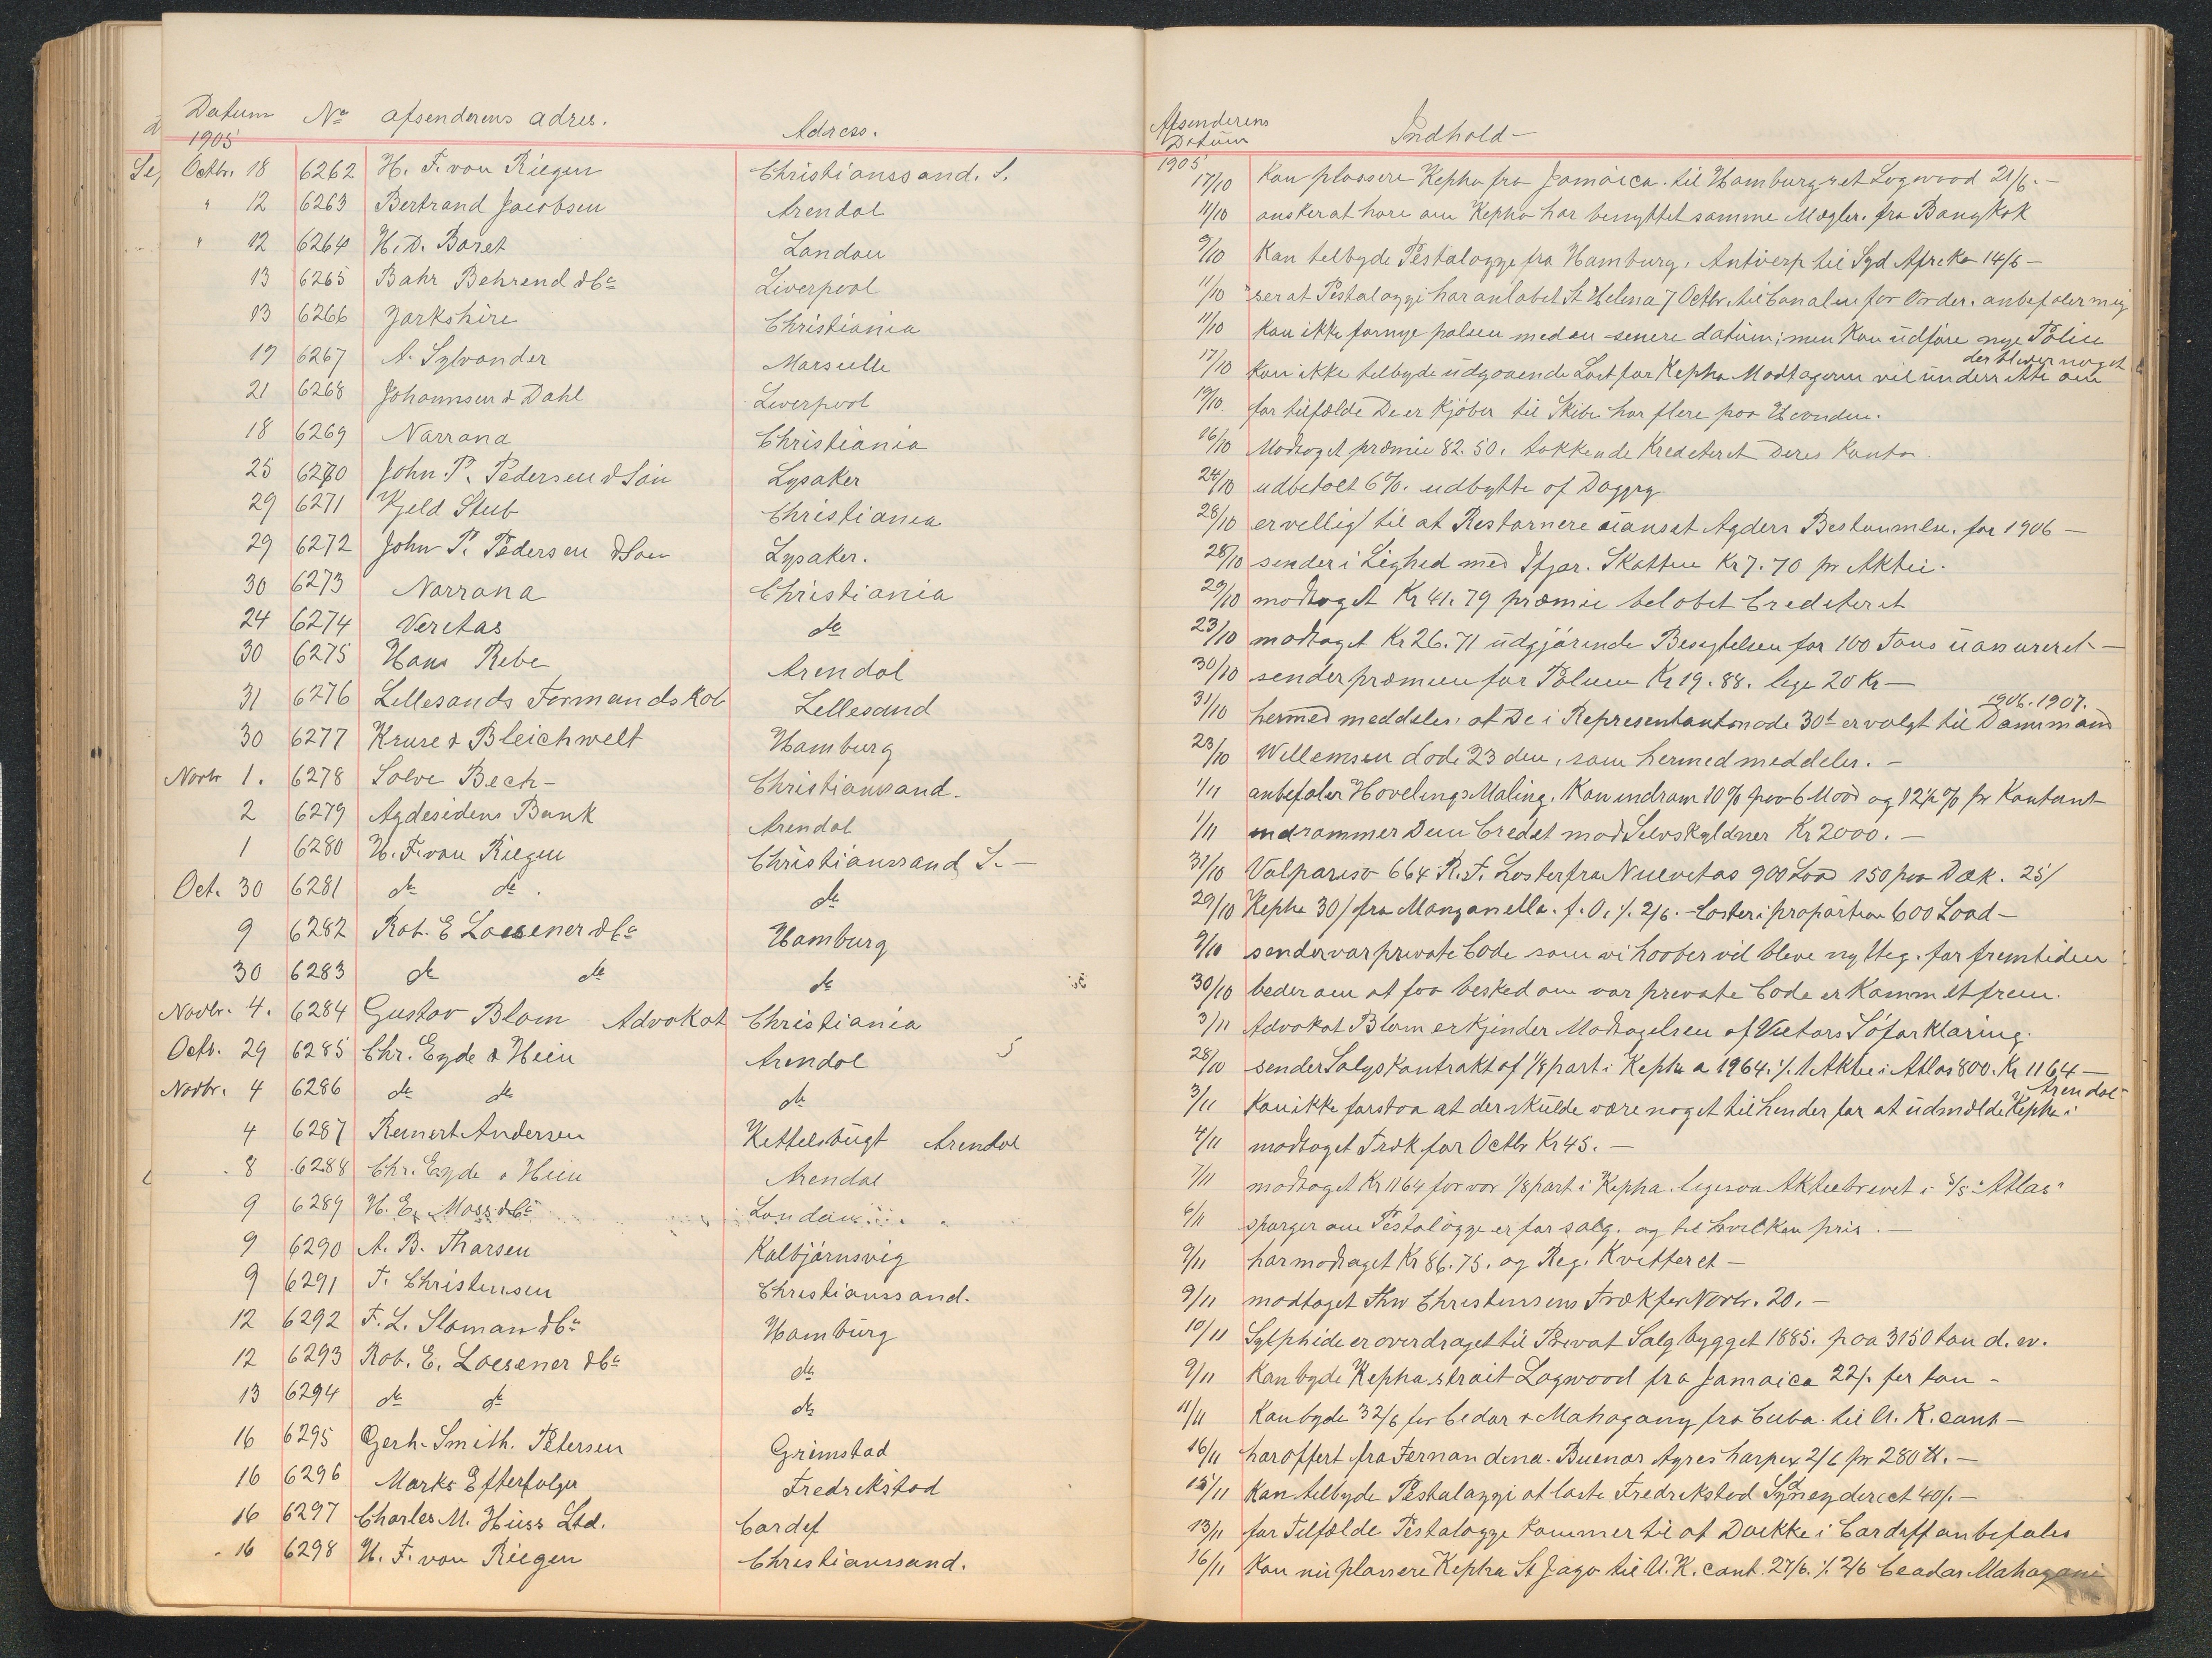 Datum No afsenderens adres. Adress.
1905
Octbr. 18 6262 H. F. von Riegen Christianssand. S.
" 12 6263 Bertrand Jacobsen Arendal
" 12 6264 H. D. Baret London
13 6265 Bahr Behrend & Co Liverpool
13 6266 Jorkshire Christiania
19 6267 A. Sylvander Marseille
21 6268 Johannsen & Dahl Liverpool
18 6269 Norrøna Christiania
25 6270 John. P. Pedersen & Søn Lysaker
29 6271 Kjeld Stub Christiania
29 6272 John P. Pedersen & Søn Lysaker.
30 6273 Norrøna Christiania
24 6274 Veritas do
30 6275 Hans Rebe Arendal
31 6276 Lillesands Formandskab Lillesand
30 6277 Kruse & Bleichwelt Hamburg
Novbr 1. 6278 Solve Bech - Christianssand.
2 6279 Agdesidens Bank Arendal
1 6280 H. F. von Riegen Christianssand S. -
Oct. 30 6281 do do. do
9 6282 Rob. E Loesener & Co Hamburg
30 6283 do do do
Novbr. 4. 6284 Gustav Blom Advokat Christiania
Octb. 29 6285 Chr. Eyde & Hein Arendal 5
Novbr. 4 6286 do do do
4 6287 Reinert Andersen Kittelsbugt Arendal
8 6288 Chr. Eyde & Hein Arendal
9 6289 H. E. Moss & Co London
9 6290 A. B. Tharsen Kolbjørnsvig
9 6291 T. Christensen Christianssand.
12 6292 F. L. Sloman & Co Hamburg
12 6293 Rob. E. Loesener & Co do
13 6294 do do do
16 6295 Gerh. Smith. Petersen Grimstad
16 6296 Marks Efterfolger Fredrikstad
16 6297 Charles M. Huss Ltd. Cardif
16 6298 H. F. von Riegen Christianssand.
Afsenderens
Datum Indhold -
1905
17/10 Kan plassere Kepha fra Jamaica. til Hamburg et Logwood 21/6. -
11/10 ønsker at høre om Kepha har benyttet samme Mægler. fra Bangkok
9/10 Kan tilbyde Pestalozzi fra Hamburg, Antverp til Syd Afrika 14/6 -
11/10 ser at Pestalozzi har anløbet St Helena 7 Octbr. til Canalen for Order. anbefaler mig
11/10 Kan ikke fornye polisen med en senere datum; men Kan udføre nye Police
17/10 Kan ikke tilbyde udgaaende Last for Kepha Modtageren vil underrette om der bliver noget
19/10 for tilfælde De er Kjøber til Skibe har flere paa Haanden.
16/10 Modtaget præmie 82.50. takkende Krediteret Deres Konto.
24/10 udbetalt 6%. udbytte af Daggry
28/10 er villig til at Restornere uanset Agders Bestemmelse. for 1906 -
28/10 sender i Lighed med Skatten Kr 7.70 pr Aktie.
29/10 modtaget Kr 41.79 præmie beløbet Crediteret
23/10 modtaget Kr 26.71 udgjørende Besigtelsen for 100 Tons -
30/10 sender præmien for Polisen Kr 19.88. lige 20 Kr -
31/10 hermed meddeles, at De i Representantmøde 30te er valgt til 1906. 1907.
23/10 Willemsen døde 23 den, som hermed meddeles. -
1/11 anbefaler Hovelings Maling. Kan indrøm 10% paa 6 Mdd og 12½% pr Kontant
1/11 indrømmer Dem Credit mod Selvskyldner Kr 2000. -
31/10 Valpariso 664 R. T. Laster fra Nuevitas 900 Load 150 paa Dæk. 25/
29/10 Kepha 30/ fra Manzanella. f. O. ⁒ 2/6. - Laster i proportion 600 Load -
9/10 sender vor private Code som vi haaber vil blive nyttig. for fremtiden
30/10 beder om at faa besked om vor private Code er Kommet frem.
3/11 Advokat Blom erkjender Modtagelsen af Victors Søforklaring.
28/10 sender Salgskontrakt af 1/8 part i Kepha a 1964. ⁒ 1 Aktie i Atlas 800. Kr 1164 -
3/11 Kan ikke forstaa at der skulde være noget til hinder for at udmelde Kepha i Arendal -
4/11 modtaget Træk for Octbr Kr 45. -
7/11 modtaget Kr 1164 for vor 1/8 part i Kepha. ligesaa Aktiebrevet i S/S "Atlas"
6/11 spørger om Pestalozzi er for salg. og til hvilken pris. -
9/11 har modtaget Kr 86.75. og Reg. Kvitteret -
9/11 modtaget Thv Christensens Træk for Novbr. 20. -
10/11 Sylphide er overdraget til Privat Salg bygget 1885. paa 3150 ton d. w.
9/11 Kan byde Kepha strait Logwood fra Jamaica 22/. per ton -
11/11 Kan byde 32/6 for Cedar & Mahogany fra Cuba. til U. K. cont -
16/11 har offert fra Fernandina. Buenos Ayres harpix 2/6 pr 280 ℔. -
15/11 Kan tilbyde Pestalozzi at laste Fredrikstad Sydney direct 40/. -
13/11 for Tilfælde Pestalozzi kommer til at Dokke i Cardiff anbefales
16/11 Kan nu plassere Kepha St Jago til U. K. cont. 27/6. ⁒ 2/6 Ceadar Mahogani